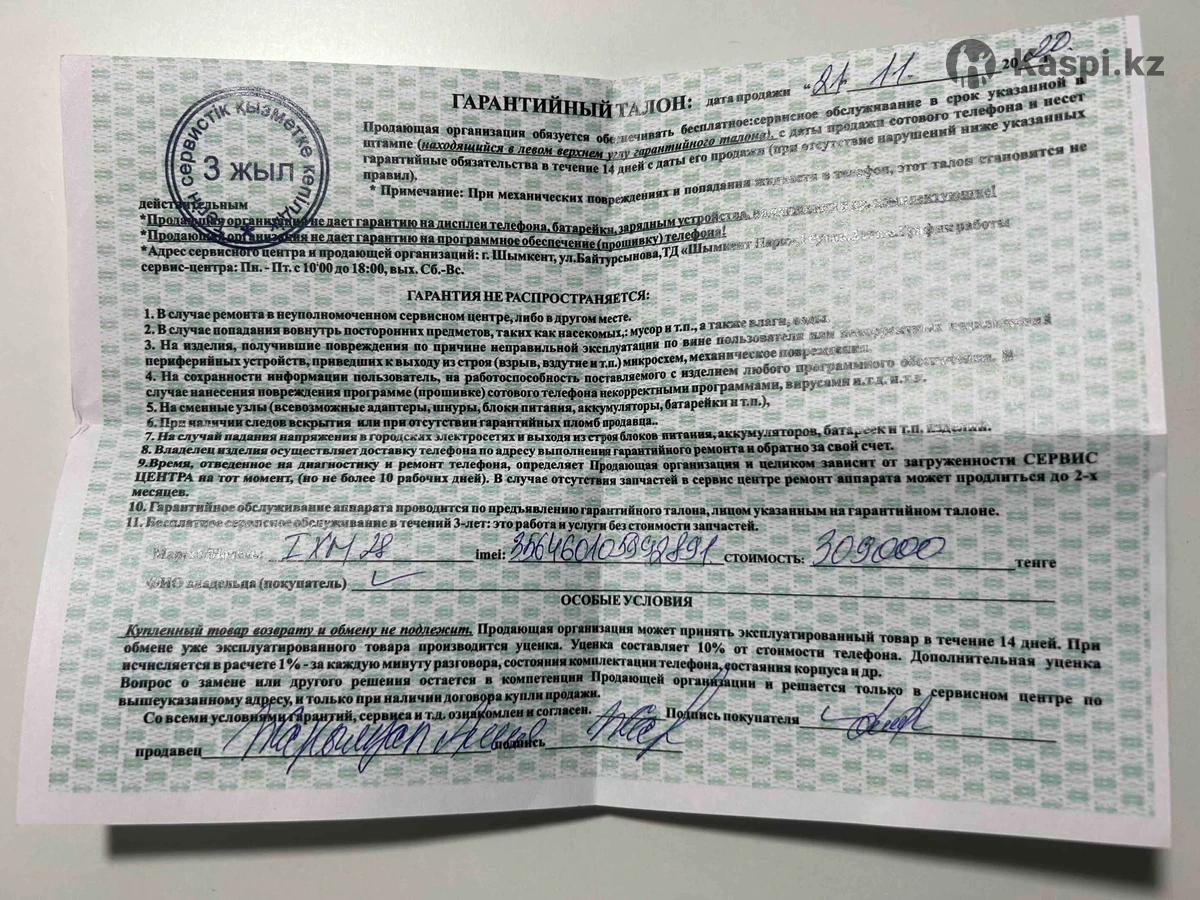 Kaspi.kz
ГАРАНТИЙНЫЙ ТАЛОН: дата продажи "21" 11. 2020.
Продающая организация обязуется обеспечивать бесплатное:сервисное обслуживание в срок указанной в
штампе (находящийся в левом верхнем углу гарантийного талона), с даты продажи сотового телефона и несет
гарантийные обязательства в течение 14 дней с даты его продажи (при отсутствие нарушений ниже указанных
правил).
3 ЖЫЛ
сервистік қызметке кепілдік
* Примечание: При механических повреждениях и попадания жидкости в телефон, этот талон становится не
действительным
*Продающая организация не дает гарантию на дисплеи телефона, батарейки, зарядным устройства, комплектующие!
*Продающая организация не дает гарантию на программное обеспечение (прошивку) телефона!
*Адрес сервисного центра и продающей организаций: г. Шымкент, ул.Байтурсынова,ТД «Шымкент График работы
сервис-центра: Пн. - Пт. с 10:00 до 18:00, вых. Сб.-Вс.
ГАРАНТИЯ НЕ РАСПРОСТРАНЯЕТСЯ:
1. В случае ремонта в неуполномоченном сервисном центре, либо в другом месте.
2. В случае попадания вовнутрь посторонних предметов, таких как насекомых,: мусор и т.п., а также влаги, воды
3. На изделия, получившие повреждения по причине неправильной эксплуатации по вине пользователя или
периферийных устройств, приведших к выходу из строя (взрыв, вздутие и т.п.) микросхем, механическое повреждения.
4. На сохранности информации пользователь, на работоспособность поставляемого с изделием любого программного обеспечения. В
случае нанесения повреждения программе (прошивке) сотового телефона некорректными программами, вирусами и.т.д. и.т.п.
5. На сменные узлы (всевозможные адаптеры, шнуры, блоки питания, аккумуляторы, батарейки и т.п.),
6. При наличии следов вскрытия или при отсутствии гарантийных пломб продавца..
7. На случай падания напряжения в городских электросетях и выходя из строя блоков питания, аккумуляторов, батареек и т.п. изделий.
8. Владелец изделия осуществляет доставку телефона по адресу выполнения гарантийного ремонта и обратно за свой счет.
9.Время, отведенное на диагностику и ремонт телефона, определяет Продающая организация и целиком зависит от загруженности СЕРВИС
ЦЕНТРА на тот момент, (но не более 10 рабочих дней). В случае отсутствия запчастей в сервис центре ремонт аппарата может продлиться до 2-х
месяцев.
10. Гарантийное обслуживание аппарата проводится по предъявлению гарантийного талона, лицом указанным на гарантийном талоне.
11. Бесплатное сервисное обслуживание в течений 3-лет: это работа и услуги без стоимости запчастей.
imei: 356460105992891 СТОИМОСТЬ: 309000 тенге
ФИО владельца (покупатель)
ОСОБЫЕ УСЛОВИЯ
Купленный товар возврату и обмену не подлежит. Продающая организация может принять эксплуатированный товар в течение 14 дней. При
обмене уже эксплуатированного товара производится уценка. Уценка составляет 10% от стоимости телефона. Дополнительная уценка
исчисляется в расчете 1% - за каждую минуту разговора, состояния комплектации телефона, состаяния корпуса и др.
Вопрос о замене или другого решения остается в компетенции Продающей организации и решается только в сервисном центре по
вышеуказанному адресу, и только при наличии договора купли продажи.
Со всеми условиями гарантий, сервиса и т.д. ознакомлен и согласен. Подпись покупателя
продавец подпись